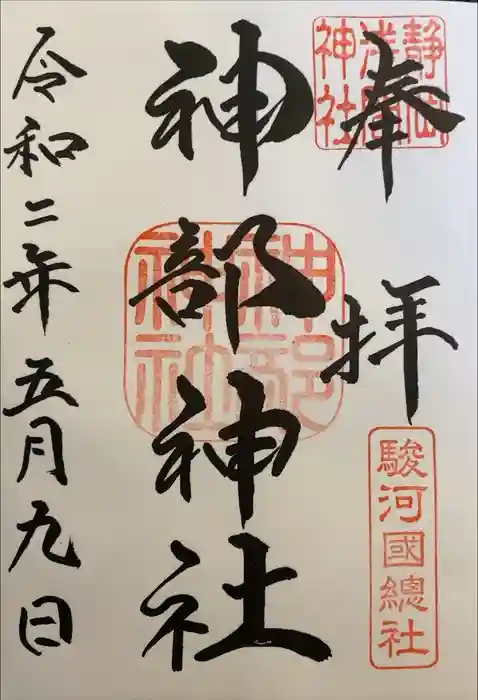 奉拝
静岡浅間神社
駿河國總社
神部神社
神部神社
令和二年五月九日